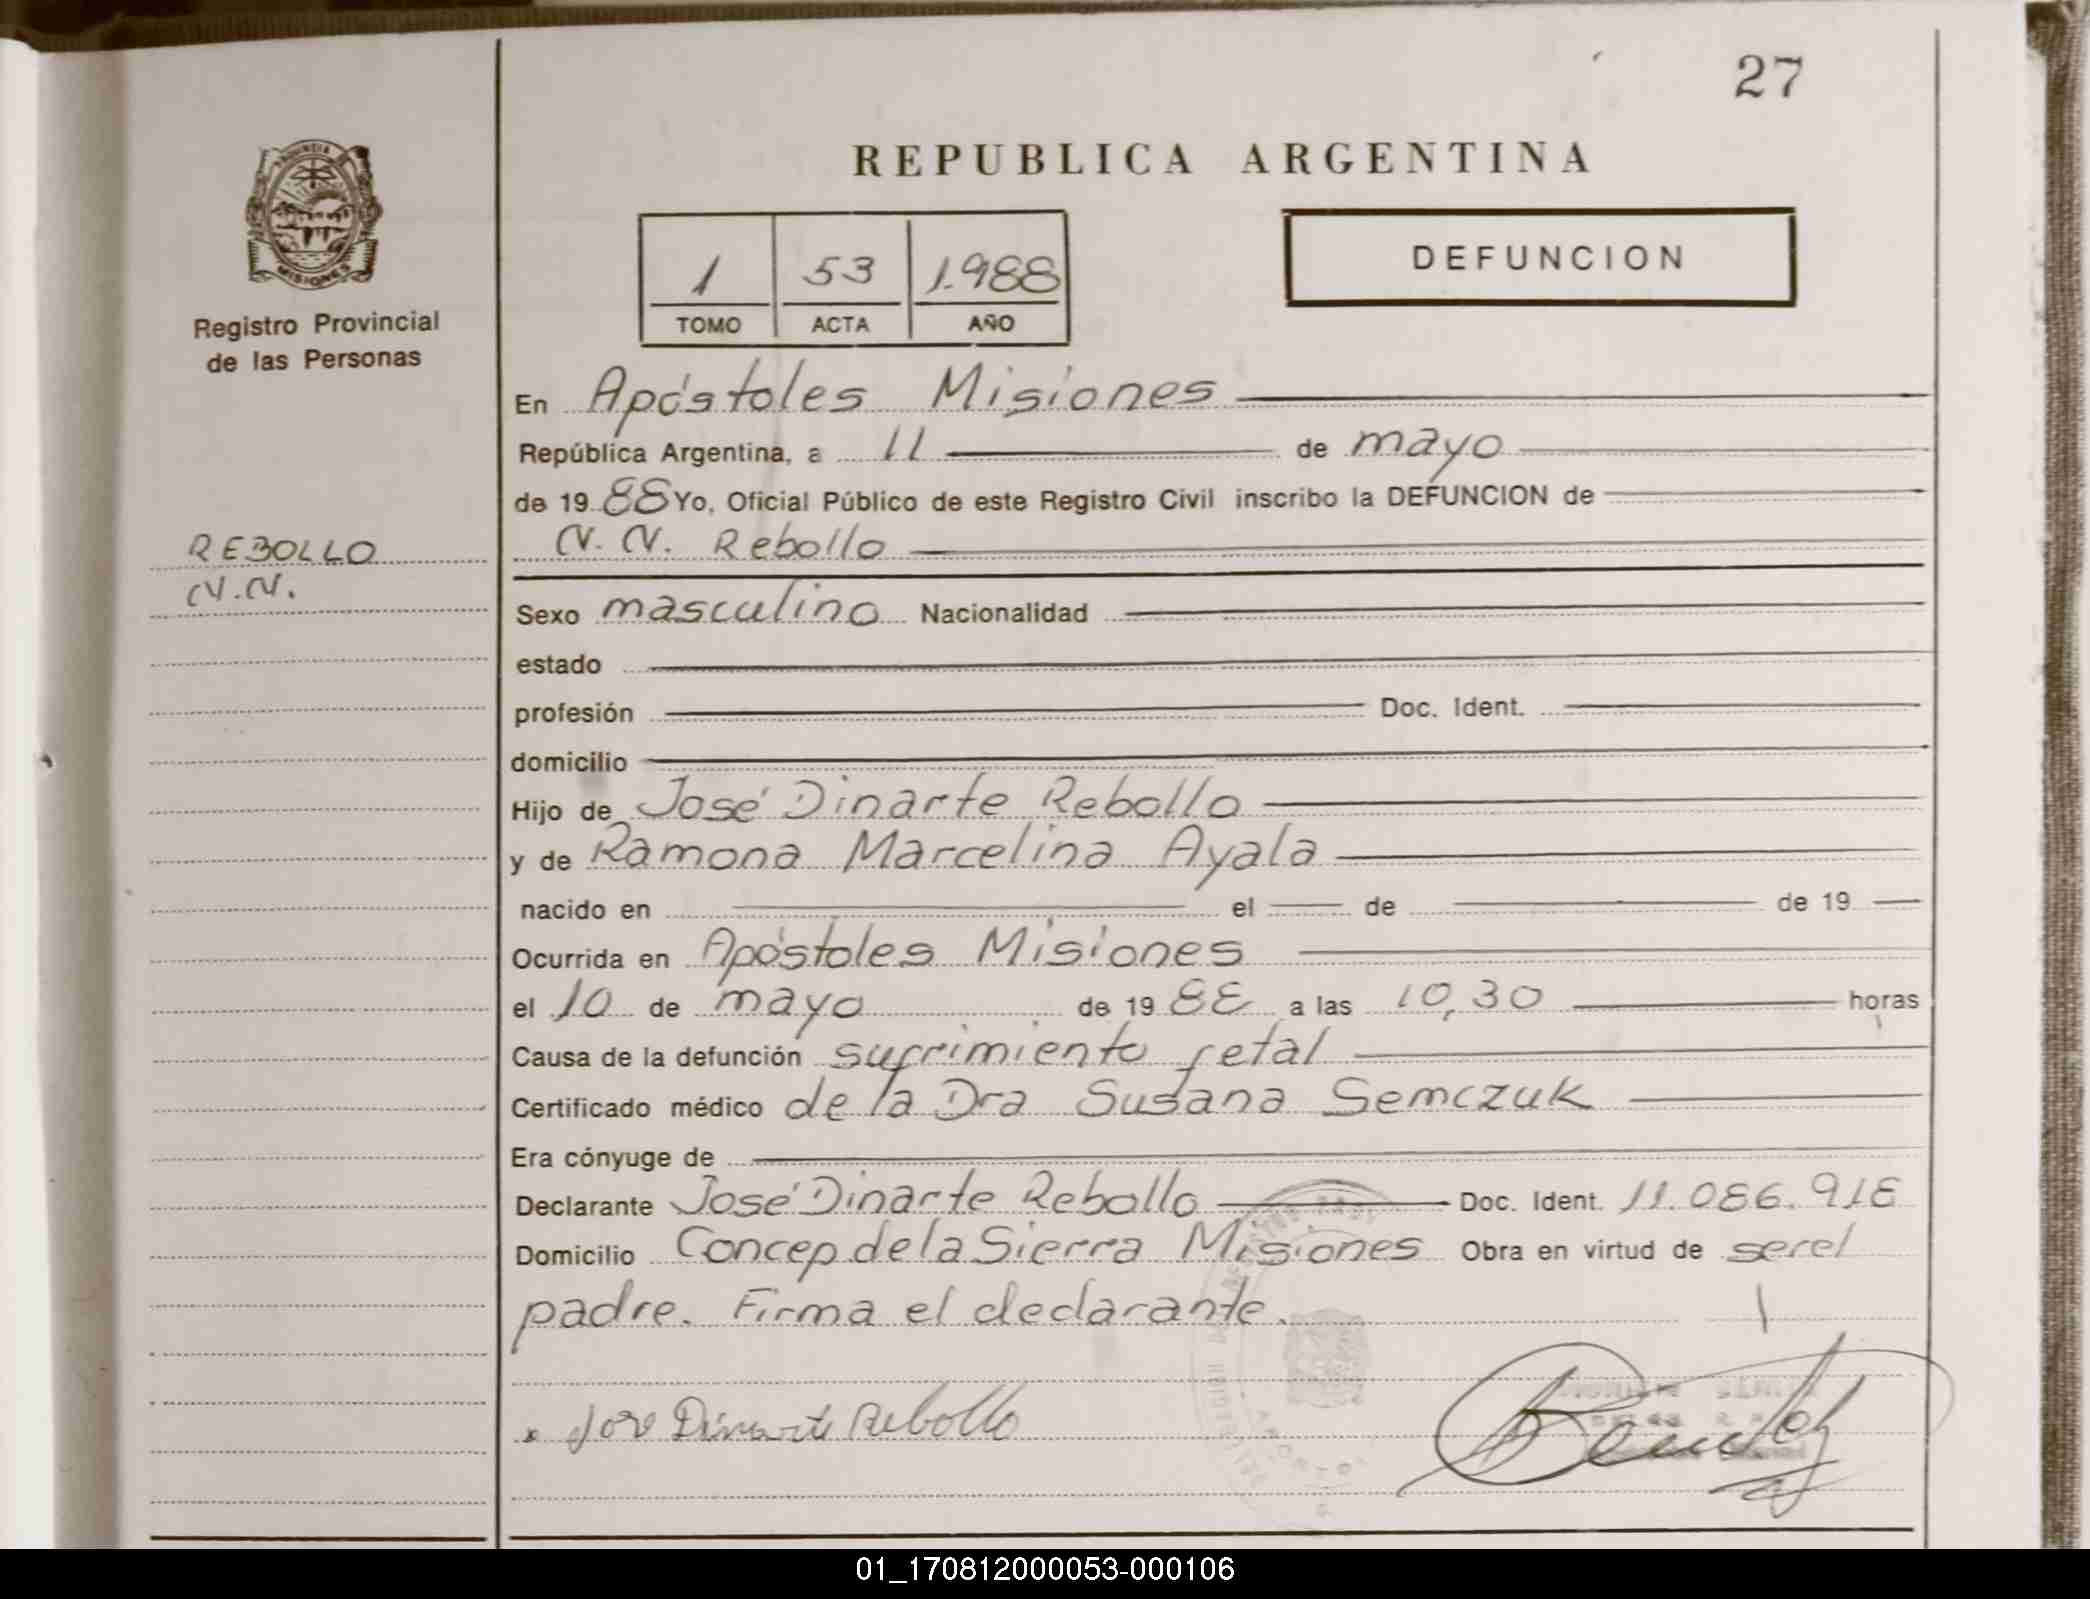 27
REPUBLICA ARGENTINA
PROVINCIA DE
MISIONES
Registro Provincial
de las Personas
1 53 1.988
TOMO ACTA AÑO
DEFUNCION
En Apóstoles Misiones
República Argentina, a 11 de mayo
de 1988 Yo, Oficial Público de este Registro Civil inscribo la DEFUNCION de
REBOLLO
N.N.
N. N. Rebollo
Sexo masculino Nacionalidad
estado
profesión Doc. Ident.
domicilio
Hijo de José Dinarte Rebollo
y de Ramona Marcelina Ayala
nacido en el de de 19
Ocurrida en Apóstoles Misiones
el 10 de mayo de 1988 a las 10,30 horas
Causa de la defunción sufrimiento fetal
Certificado médico de la Dra Susana Semczuk
Era cónyuge de
Declarante José Dinarte Rebollo Doc. Ident. 11.086.918
Domicilio Concep de la Sierra Misiones Obra en virtud de ser el
padre. Firma el declarante.
x José Dinarte Rebollo
01_170812000053-000106